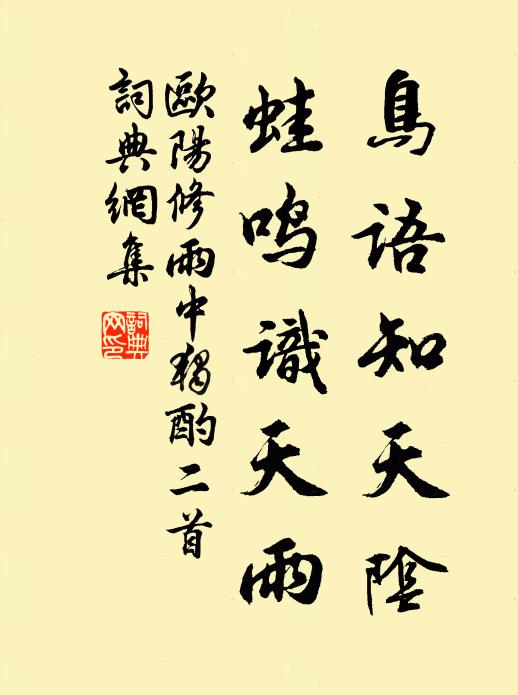 鳥語知天陰
蛙鳴識天雨
歐陽修雨中獨酌二首
詞典網集
詞典
网印